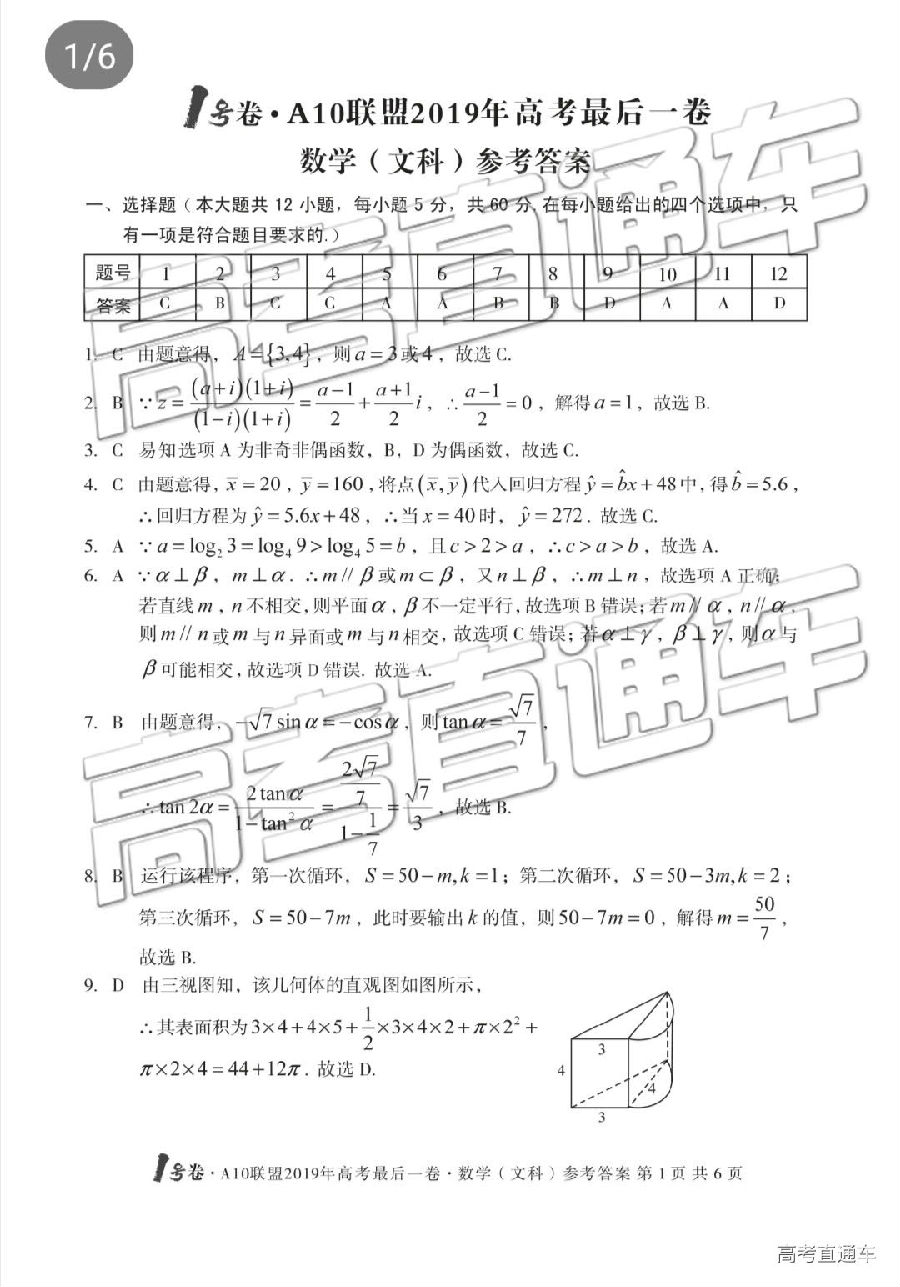 1/6
1号卷·A10联盟2019年高考最后一卷
数学（文科）参考答案
一、选择题（本大题共 12 小题，每小题 5 分，共 60 分.在每小题给出的四个选项中，只
有一项是符合题目要求的.）
题号 1 2 3 4 5 6 7 8 9 10 11 12
答案 C B C C A A B B D A A D
1. C 由题意得，A={3,4}，则a=3或4，故选 C.
2. B ∵z=(a+i)(1+i)/(1−i)(1+i)=(a−1)/2+(a+1)/2 i，∴(a−1)/2=0，解得a=1，故选 B.
3. C 易知选项 A 为非奇非偶函数，B，D 为偶函数，故选 C.
4. C 由题意得，x̄=20，ȳ=160，将点(x̄,ȳ)代入回归方程ŷ=b̂x+48中，得b̂=5.6，
∴回归方程为ŷ=5.6x+48，∴当x=40时，ŷ=272. 故选 C.
5. A ∵a=log₂3=log₄9>log₄5=b，且c>2>a，∴c>a>b，故选 A.
6. A ∵α⊥β，m⊥α. ∴m//β或m⊂β，又n⊥β，∴m⊥n，故选项 A 正确;
若直线m，n不相交,则平面α，β不一定平行,故选项 B 错误;若m//α，n//α，
则m//n或m与n异面或m与n相交，故选项 C 错误;若α⊥γ，β⊥γ，则α与
β可能相交,故选项 D 错误. 故选 A.
7. B 由题意得，−√7sinα=−cosα，则tanα=√7/7，
∴tan2α=2tanα/(1−tan²α)=(2√7/7)/(1−1/7)=√7/3，故选 B.
8. B 运行该程序，第一次循环，S=50−m,k=1；第二次循环，S=50−3m,k=2；
第三次循环，S=50−7m，此时要输出k的值，则50−7m=0，解得m=50/7，
故选 B.
9. D 由三视图知，该几何体的直观图如图所示，
∴其表面积为3×4+4×5+1/2×3×4×2+π×2²+
π×2×4=44+12π. 故选 D.
3
4
4
3
1号卷·A10联盟2019年高考最后一卷·数学（文科）参考答案 第 1 页 共 6 页
高考直通车
高考直通车
高考直通车